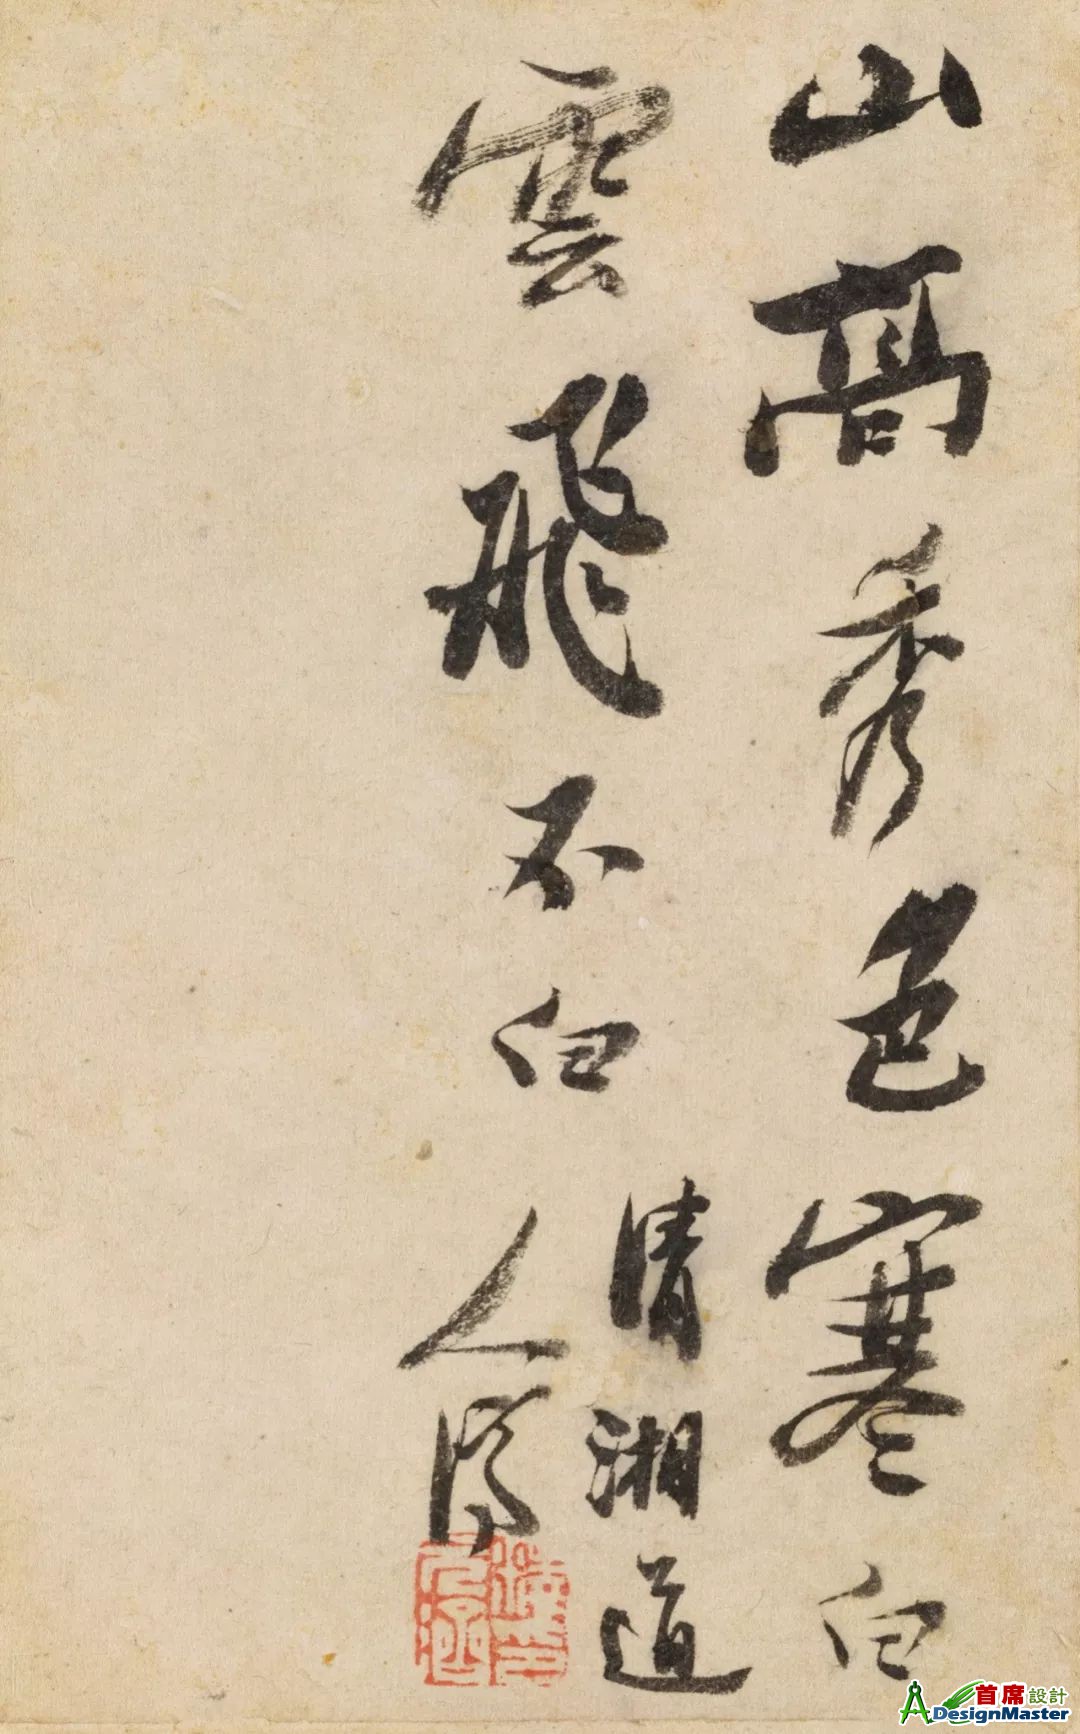 山高秀色寒白
雲飛不白
清湘道
人濟
首席設計
ADesignMaster